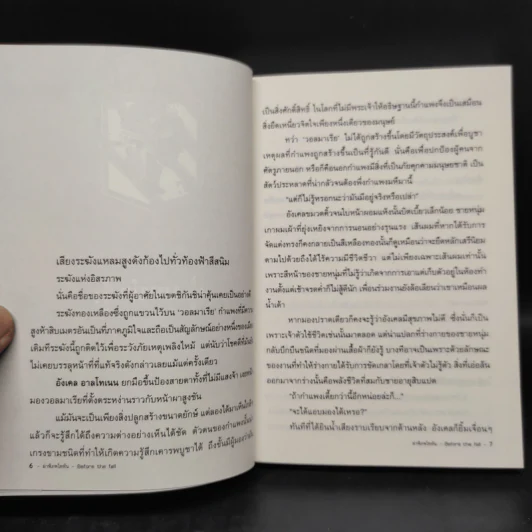 เสียงระฆังแหลมสูงดังก้องไปทั่วท้องฟ้าสีสนิม
ระฆังแห่งอิสรภาพ
นั่นคือชื่อของระฆังที่ผู้อาศัยในเขตชิกันชิน่าคุ้นเคยเป็นอย่างดี
ระฆังทองเหลืองซึ่งถูกแขวนไว้บน 'วอลมาเรีย' กำแพงที่มีความ
สูงห้าสิบเมตรอันเป็นที่ภาคภูมิใจและถือเป็นสัญลักษณ์อย่างหนึ่งของเมือง
เดิมทีระฆังนี้ถูกติดไว้เพื่อระวังภัยเหตุเพลิงไหม้ แต่นับว่าโชคดีที่มัน
ไม่เคยบรรลุหน้าที่ที่แท้จริงดังกล่าวเลยแม้แต่ครั้งเดียว
อังเคล อาลโทเนน ยกมือขึ้นป้องสายตาทั้งที่ไม่มีแสงจ้า
มองวอลมาเรียที่ตั้งตระหง่านราวกับหน้าผาสูงชัน
แม้มันจะเป็นเพียงสิ่งปลูกสร้างขนาดยักษ์ แต่ลองได้มาเห็นใกล้ๆ
แล้วก็จะรู้สึกได้ถึงความต่างอย่างเห็นได้ชัด ตัวตนของกำแพงนั้น
เกรงขามชนิดที่ทำให้เกิดความรู้สึกเคารพบูชาได้ ถึงขั้นมีผู้มองว่า
6 - ผ่าพิภพไททัน - Before the fall
เป็นสิ่งศักดิ์สิทธิ์ ในโลกที่ไม่มีพระเจ้าให้อธิษฐานนี้กำแพงจึงเป็นเสมือน
สิ่งยึดเหนี่ยวจิตใจเพียงหนึ่งเดียวของมนุษย์
ทว่า 'วอลมาเรีย' ไม่ได้ถูกสร้างขึ้นโดยมีวัตถุประสงค์เพื่อบูชา
เหตุผลที่กำแพงถูกสร้างขึ้นเป็นที่รู้กันดี นั่นคือเพื่อปกป้องผู้คนจาก
ศัตรูภายนอก หรือก็คือนอกกำแพงมีสิ่งที่เป็นภัยคุกคามมนุษยชาติ เป็น
สัตว์ประหลาดที่น่ากลัวจนต้องพึ่งกำแพงมหึมานี้
"แต่ก็ไม่รู้หรอกนะว่ามันมีอยู่จริงหรือเปล่า"
อังเคลขมวดคิ้วจนใบหน้าผอมแห้งนั้นยิ่งเบี้ยวเล็กน้อย ชายหนุ่ม
เกาผมเผ้าที่ยุ่งเหยิงจากการนอนอย่างรุนแรง เส้นผมที่หากได้รับการ
จัดแต่งทรงก็คงกลายเป็นสีเหลืองทองนั้นก็ดูเหมือนว่าจะยืดหลักเสรีนิยม
ตามไปด้วยถึงได้ไร้ความมีชีวิตชีวา แต่ไม่เพียงเฉพาะเส้นผมเท่านั้น
เพราะสีหน้าของชายหนุ่มที่ไม่รู้ว่าเกิดจากการเอาแต่เก็บตัวอยู่ในห้องทำ
งานตั้งแต่เช้าจรดค่ำก็ไม่สู้ดีนัก เพื่อนร่วมงานยังล้อเลียนว่าเขาเหมือนผล
น้ำเต้า
หากมองปราดเดียวก็คงจะรู้ว่าอังเคลมีสุขภาพไม่ดี ซึ่งนั่นก็เป็น
เพราะเจ้าตัวใช้ชีวิตเช่นนั้นมาตลอด แต่น่าแปลกที่ร่างกายของชายหนุ่ม
กลับบึกบึนชนิดที่มองผ่านเสื้อผ้าก็ยังรู้ บางทีอาจเป็นเพราะตัวลักษณะ
ของงานที่ทำให้ร่างกายได้รับการขัดเกลาโดยที่เจ้าตัวไม่รู้ตัว สิ่งที่เอ่อล้น
ออกมาจากร่างนั้นคือพลังชีวิตที่สมกับชายอายุสิบแปด
"ถ้ากำแพงเตี้ยกว่านี้อีกหน่อยล่ะก็..."
"จะได้แอบมองได้เหรอ?"
ทันทีที่ได้ยินน้ำเสียงราบเรียบจากด้านหลัง อังเคลก็ยิ้มเจื่อนๆ
ผ่าพิภพไททัน - Before the fall - 7